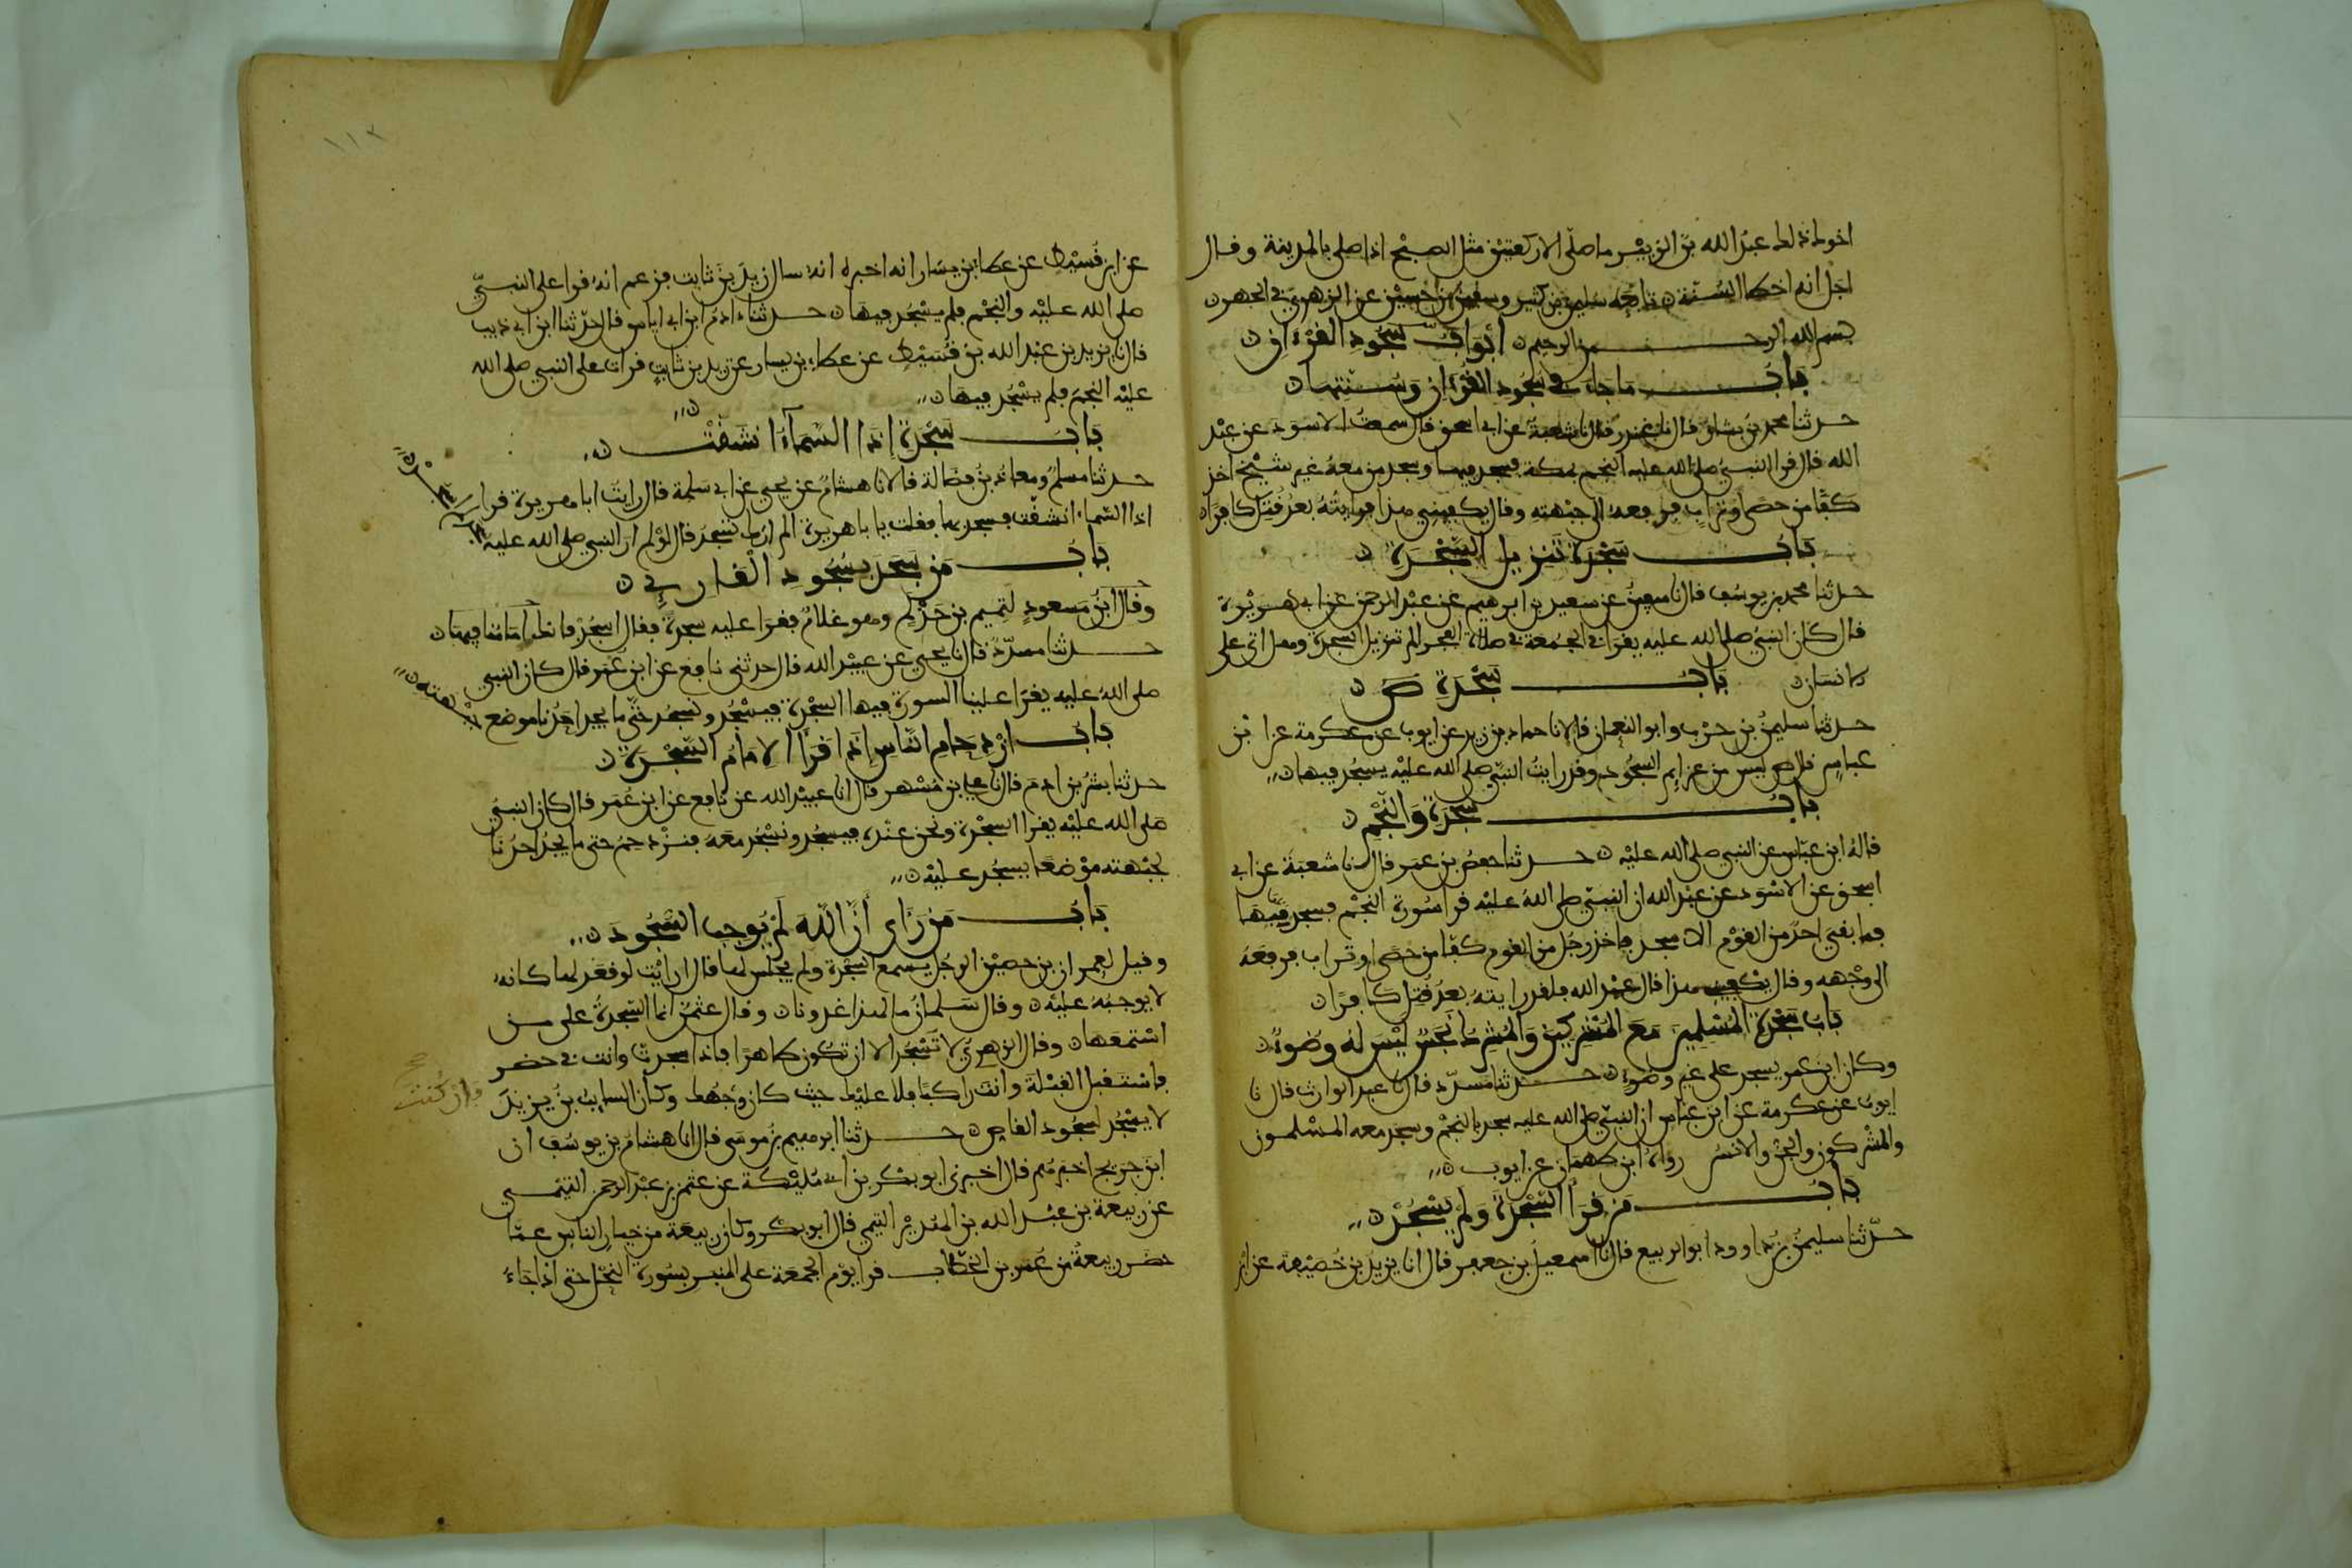 اخوك ذلك عبد الله بن الزبير ما صلى الا ركعتين مثل الصبح اذا صلى بالمدينة وقال
اجل انه اخطا السنة تابعه سليمن بن كثير وسفين بن حسين عن الزهري في الجهر
بسم الله الرحمن الرحيم أبواب سجود القرءان
باب ما جاء في سجود القرءان وسنتها
حدثنا محمد بن بشار قال نا غندر قال نا شعبة عن ابي اسحق قال سمعت الاسود عن عبد
الله قال قرا النبي صلى الله عليه النجم بمكة فسجد فيها وسجد من معه غير شيخ اخذ
كفا من حصى او تراب فرفعه الى جبهته وقال يكفيني هذا فرايته بعد قتل كافرا
باب سجدة تنزيل السجدة
حدثنا محمد بن يوسف قال نا سفين عن سعد بن ابرهيم عن عبد الرحمن عن ابي هريرة
قال كان النبي صلى الله عليه يقرا في الجمعة في صلاة الفجر الم تنزيل السجدة وهل اتى على
الانسان باب سجدة ص
حدثنا سليمن بن حرب وابو النعمان قالا نا حماد بن زيد عن ايوب عن عكرمة عن ابن
عباس قال ص ليس من عزايم السجود وقد رايت النبي صلى الله عليه يسجد فيها
باب سجدة والنجم
قاله ابن عباس عن النبي صلى الله عليه حدثنا حفص بن عمر قال نا شعبة عن ابي
اسحق عن الاسود عن عبد الله ان النبي صلى الله عليه قرا سورة النجم فسجد فيها
فما بقي احد من القوم الا سجد فاخذ رجل من القوم كفا من حصى او تراب فرفعه
الى وجهه وقال يكفيني هذا قال عبد الله فلقد رايته بعد قتل كافرا
باب سجدة المسلمين مع المشركين والمشرك نجس ليس له وضوء
وكان ابن عمر يسجد على غير وضوء حدثنا مسدد قال نا عبد الوارث قال نا
ايوب عن عكرمة عن ابن عباس ان النبي صلى الله عليه سجد بالنجم وسجد معه المسلمون
والمشركون والجن والانس رواه ابن طهمان عن ايوب
باب من قرا السجدة ولم يسجد
حدثنا سليمن بن داوود ابو الربيع قال نا اسمعيل بن جعفر قال انا يزيد بن خصيفة عن ابن
عن ابن قسيط عن عطاء بن يسار انه اخبره انه سال زيد بن ثابت فزعم انه قرا على النبي
صلى الله عليه والنجم فلم يسجد فيها حدثنا ادم ابن ابي اياس قال حدثنا ابن ابي ذيب
قال نا يزيد بن عبد الله بن قسيط عن عطاء بن يسار عن زيد بن ثابت قرات على النبي صلى الله
عليه النجم فلم يسجد فيها
باب سجدة إذا السماء انشقت
حدثنا مسلم ومعاذ بن فضالة قالا نا هشام عن يحيى عن ابي سلمة قال رايت ابا هريرة قرا
اذا السماء انشقت فسجد بها فقلت يا با هريرة الم ارك تسجد قال لو لم ار النبي صلى الله عليه
باب من سجد بسجود القارئ
وقال ابن مسعود لتميم بن حذلم وهو غلام فقرا عليه سجدة فقال اسجد فانك امامنا فيها
حدثنا مسدد قال نا يحيى عن عبيد الله قال حدثني نافع عن ابن عمر قال كان النبي
صلى الله عليه يقرا علينا السورة فيها السجدة فيسجد ونسجد حتى ما يجد احدنا موضع جبهته
باب ازدحام الناس إذا قرأ الإمام السجدة
حدثنا بشر بن ادم قال نا علي بن مسهر قال انا عبيد الله عن نافع عن ابن عمر قال كان النبي
صلى الله عليه يقرا السجدة ونحن عنده فيسجد ونسجد معه فنزدحم حتى ما يجد احدنا
لجبهته موضعا يسجد عليه
باب من رأى أن الله لم يوجب السجود
وقيل لعمران بن حصين الرجل يسمع السجدة ولم يجلس لها قال ارايت لو قعد لها كانه
لا يوجبه عليه وقال سلمان ما لهذا غدونا وقال عثمن انما السجدة على من
استمعها وقال الزهري لا تسجد الا ان تكون طاهرا فاذا سجدت وانت في حضر
فاستقبل القبلة وانت راكبا فلا عليك حيث كان وجهك وكان السايب بن يزيد
فان كنت
لا يسجد لسجود القاص حدثنا ابرهيم بن موسى قال انا هشام بن يوسف ان
ابن جريج اخبرهم قال اخبرني ابو بكر بن ابي مليكة عن عثمن بن عبد الرحمن التيمي
عن ربيعة بن عبد الله بن الهدير التيمي قال ابو بكر وكان ربيعة من خيار الناس عما
حضر ربيعة من عمر بن الخطاب قرا يوم الجمعة على المنبر بسورة النحل حتى اذا جاء